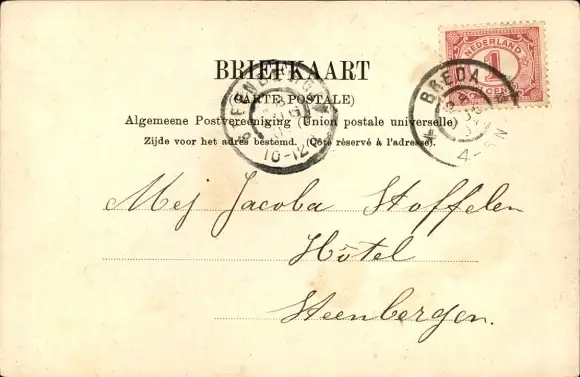 NEDERLAND
1
CENT
BRIEFKAART
(CARTE POSTALE)
Algemeene Postvereeniging (Union postale universelle)
Zijde voor het adres bestemd. (Côté réservé à l'adresse).
STEENBERGEN
10-12V
BREDA
4-5N
Mej Jacoba Stoffelen
Hôtel
Steenbergen.